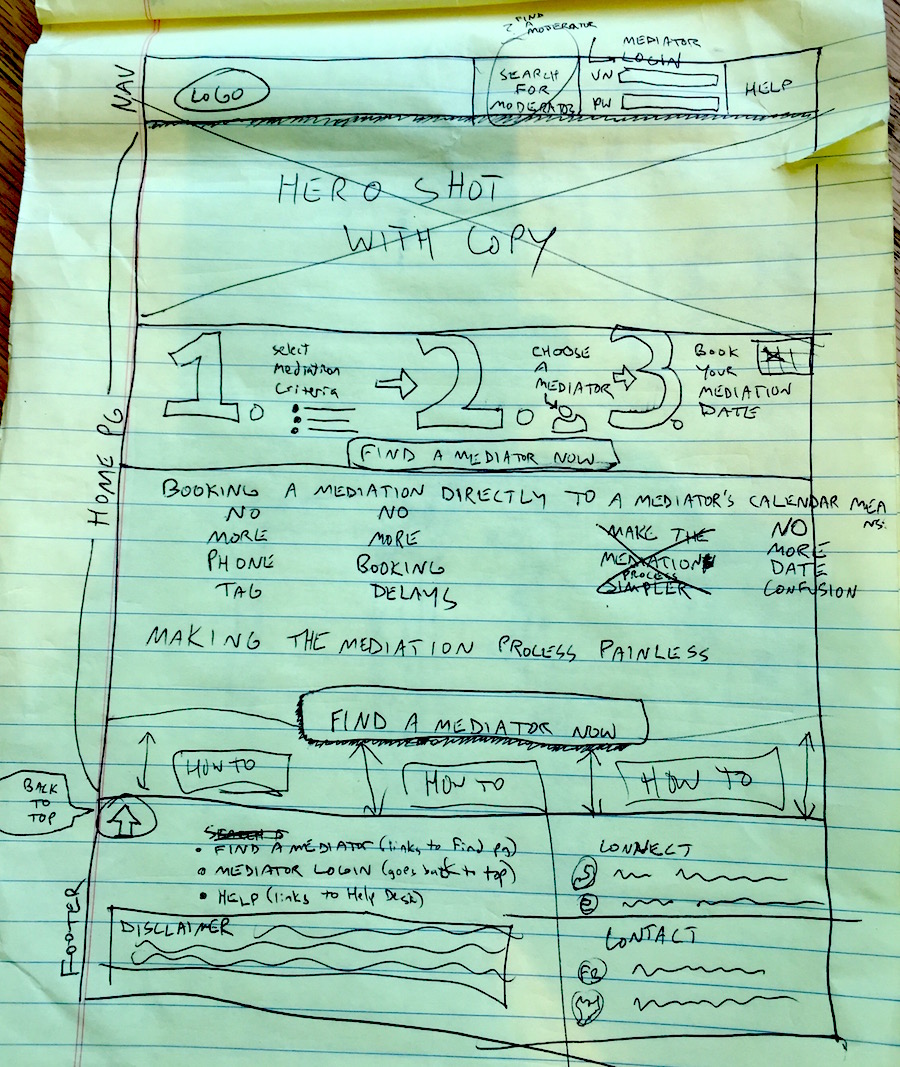 ? FIND
A
MODERATOR
MEDIATOR
LOGIN
NAV
LOGO
SEARCH
FOR
MODERATOR
UN
PW
HELP
HERO SHOT
WITH COPY
HOME PG
1.
Select
Mediation
Criteria
2.
CHOOSE
A
MEDIATOR
3.
BOOK
YOUR
MEDIATION
DATE
FIND A MEDIATOR NOW
BOOKING A MEDIATION DIRECTLY TO A MEDIATOR'S CALENDAR MEA
NS:
NO
MORE
PHONE
TAG
NO
MORE
BOOKING
DELAYS
MAKE THE
MEDIATION
PROCESS
SIMPLER
NO
MORE
DATE
CONFUSION
MAKING THE MEDIATION PROCESS PAINLESS
FIND A MEDIATOR NOW
HOW TO
HOW TO
HOW TO
BACK
TO
TOP
FOOTER
SEARCH
• FIND A MEDIATOR (links to Find pg)
• MEDIATOR LOGIN (goes back to top)
• HELP (links to Help Desk)
DISCLAIMER
CONNECT
CONTACT
FB